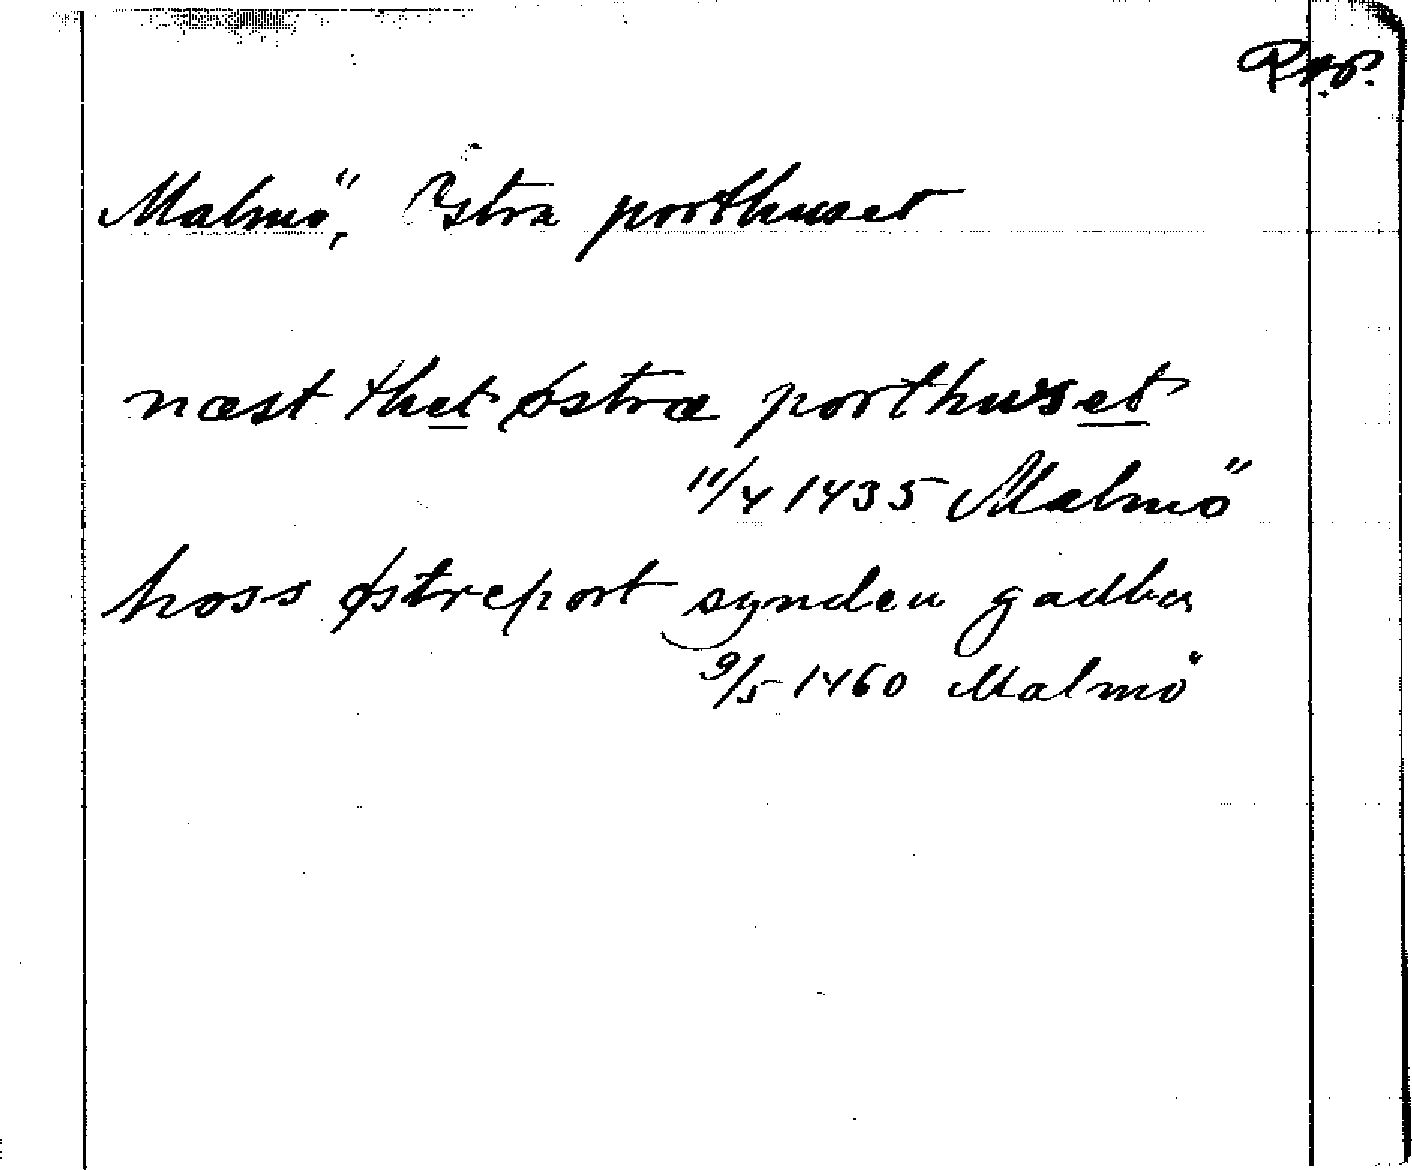 Malmö, Östra porthuset
næst thet østræ porthuset
11/4 1435 Malmö
hoss østreport synden gadha
9/5 1460 Malmö